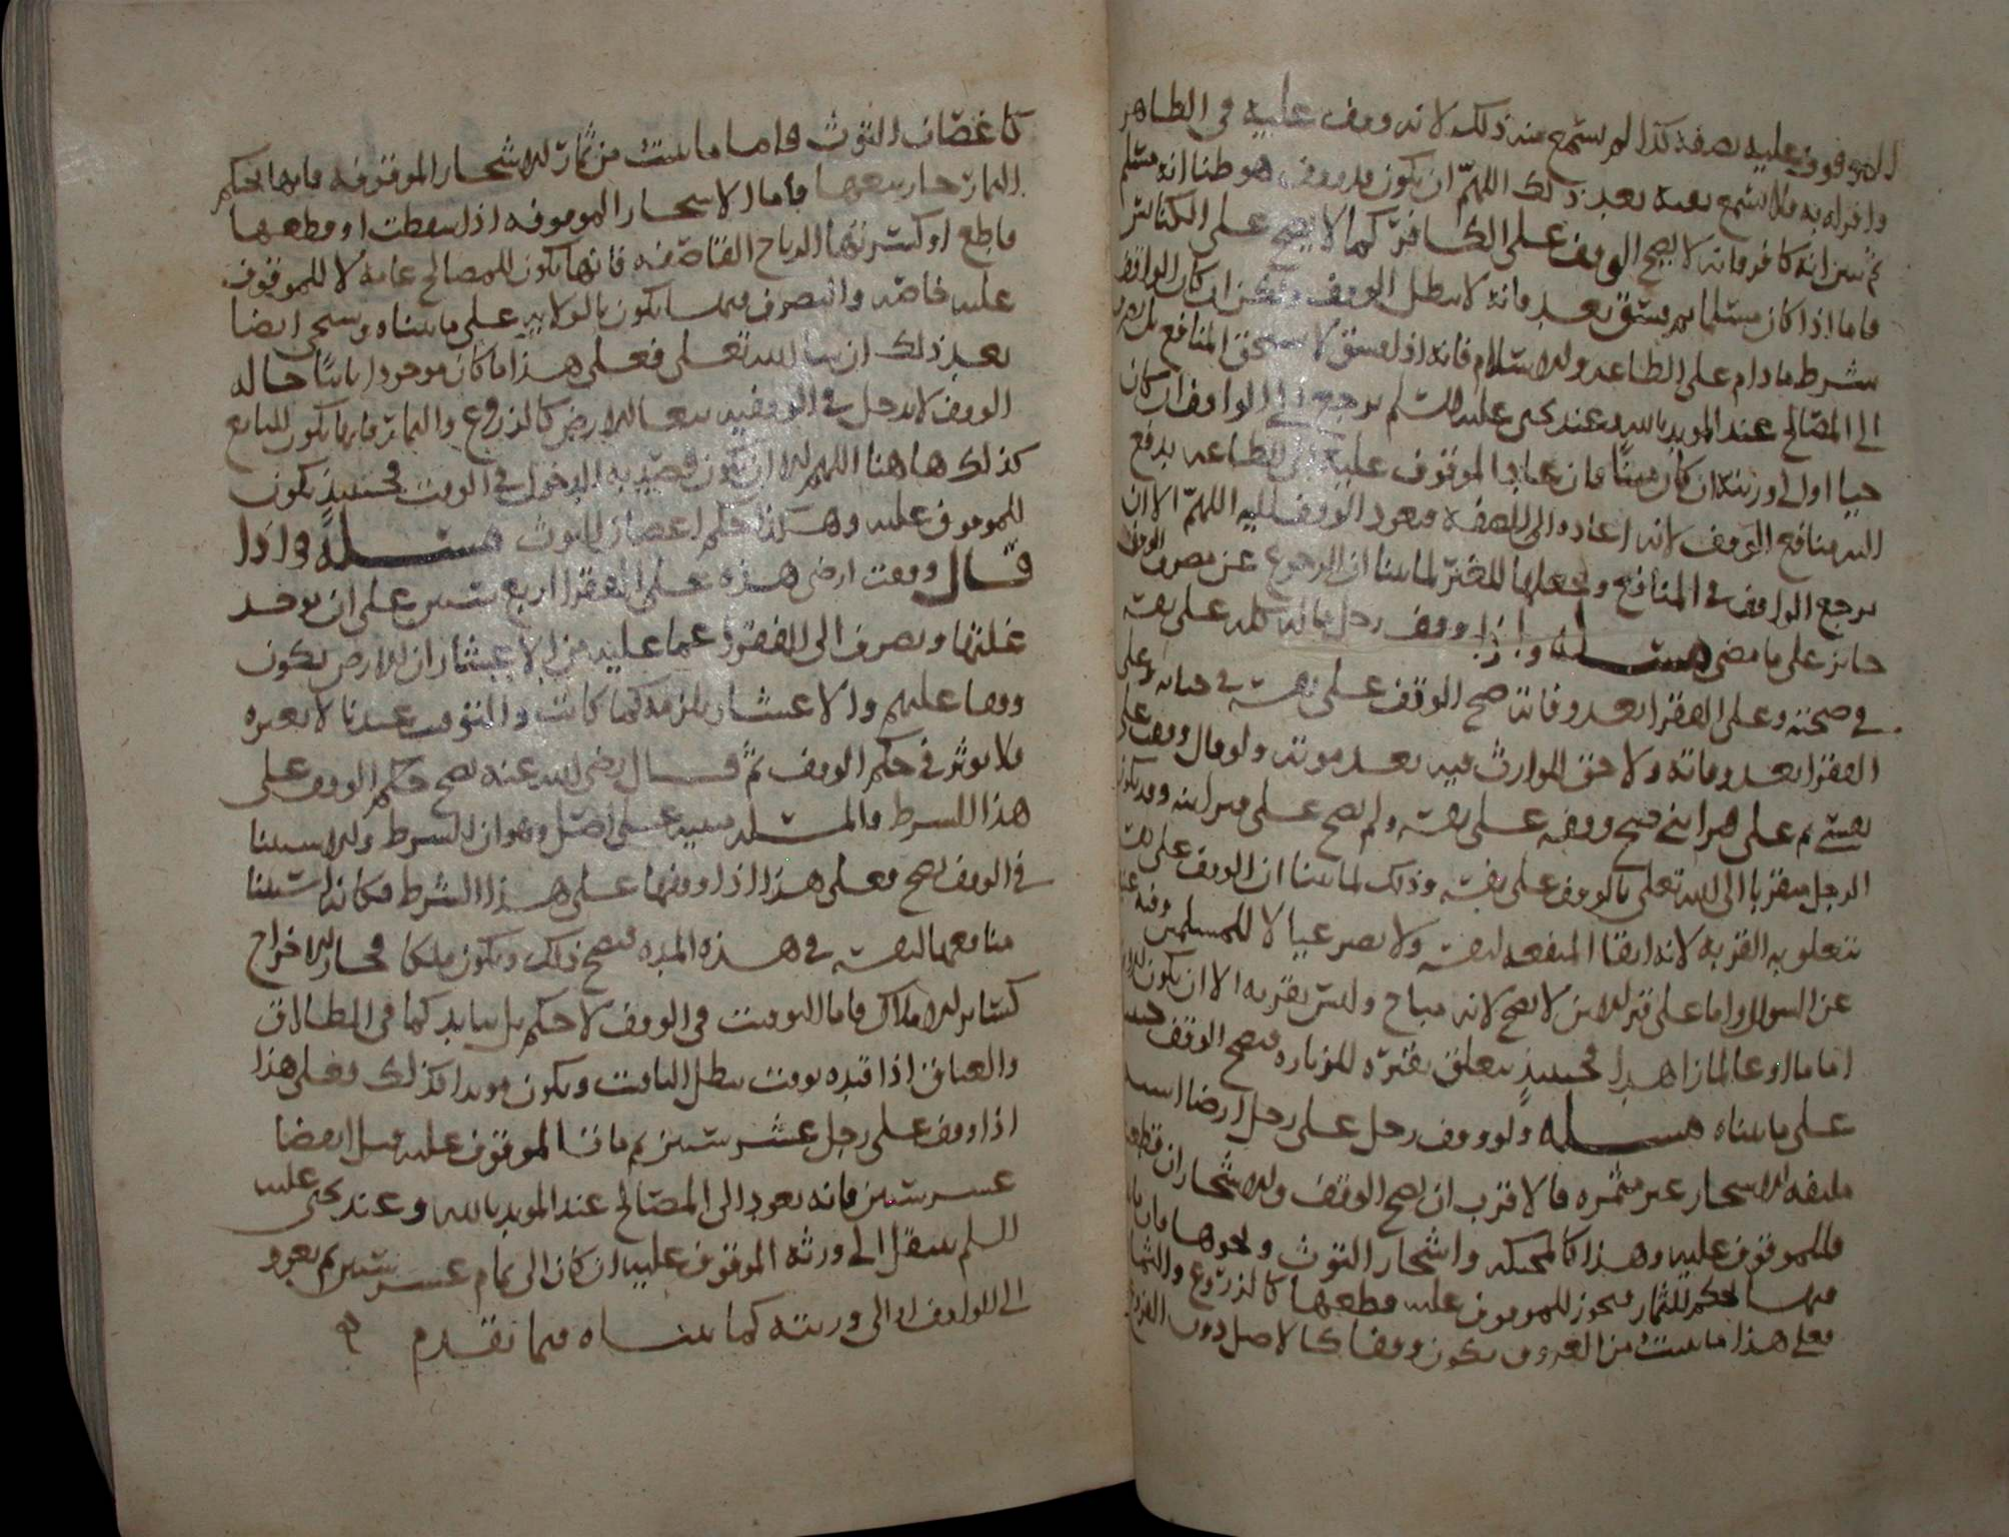 الموقوف عليه بصفة كذا لم يسمع منه ذلك لانه وقف عليه في الظاهر
واقراره به فلا تسمع بينه بعد ذلك اللهم ان يكون قد وقف هو ظنا انه مسلم
ثم تبين انه كافر فانه لا يصح الوقف على الكافر كما لا يصح على الكنائس
فاما اذا كان مسلما ثم فسق بعد فانه لا يبطل الوقف ولكن ان كان الواقف
شرط ما دام على الطاعه والاسلام فانه اذا فسق لا يستحق المنافع بل تصرف
الى المصالح عند المويد بالله وعند يحيى عليه السلم يرجع الى الواقف ان كان
حيا او الى ورثته ان كان ميتا فان عاد الموقوف عليه الى الطاعه يدفع
اليه منافع الوقف لانه اعاده الى الصفه فيعود الوقف اليه اللهم الا ان
يرجع الواقف في المنافع ويجعلها للغير لما بينا ان الرجوع عن مصرف الوقف
جائز على ما مضى مسله واذا وقف رجل ماله كله على نفسه
في صحته وعلى الفقرا بعد وفاته صح الوقف على نفسه في حياته وعلى
الفقرا بعد وفاته ولا حق للوارث فيه بعد موته ولو قال وقفت على
نفسي ثم على ميراثي صح وقفه على نفسه ولم يصح على ميراثه وقد يكون
الرجل متقربا الى الله تعلى بالوقف على نفسه وذلك لما بينا ان الوقف على
تتعلق به القربه لانه ابقا المنفعه لنفسه ولا يصير عيالا للمسلمين وفيه
عن السوال واما على قبر الابن لا يصح لانه مباح وليس بقربه الا ان يكون
اماما او عالما زاهدا فحينيذ يتعلق بقبره للزياره فيصح الوقف
على ما بيناه مسله ولو وقف رجل على رجل ارضا
ملتفه الاشجار غير مثمره فالاقرب ان يصح الوقف والاشجار ان قطعت
فللموقوف عليه وهذا كالمحكه واشجار التوث ونحوها فان
فيها بحكم الثمار فيجوز للموقوف عليه قطعها كالزروع والثمار
فعلى هذا ما ينبت من العروق يكون وقفا كالاصل دون
كاغصان التوث فاما ما ينبت من ثمار الاشجار الموقوفه فانها بحكم
الثمار جاز بيعها فاما الاشجار الموقوفه اذا سقطت او قطعها
قاطع او كسرتها الرياح القاصفه فانها تكون للمصالح عامه لا للموقوف
عليه خاصه والتصرف فيها يكون بالولايه على ما بيناه وسيجي ايضا
بعد ذلك ان شا الله تعلى فعلى هذا ما كان موجودا ثابتا حاله
الوقف لا يدخل في الوقفيه تبعا للارض كالزروع والثمار فانها تكون للبايع
كذلك هاهنا اللهم الا ان يكون قصد به الدخول في الوقف فحينيذ يكون
للموقوف عليه وهكذا حكم اغصان التوث مسله واذا
قال وقفت ارضى هذه على الفقرا اربع سنين على ان يوخذ
غلتها ويصرف الى الفقرا عما عليه من الاعشار ان الارض تكون
وقفا عليهم والاعشار يلزمه كما كانت والتوقيت عندنا لا يغيره
ولا يوثر في حكم الوقف ثم قال رضي الله عنه يصح حكم الوقف على
هذا الشرط والمسله مبنيه على اصل وهو ان الشرط والاستثنا
في الوقف يصح فعلى هذا اذا وقفها على هذا الشرط فكانه استثنا
منافعها لنفسه في هذه المده فيصح ذلك ويكون ملكا فجاز الاخراج
كسائر الاملاك فاما التوقيت في الوقف لا حكم بل يتابد كما في الطلاق
والعتاق اذا قيده بوقت يبطل التاقيت ويكون موبدا كذلك فعلى هذا
اذا وقف على رجل عشر سنين ثم مات الموقوف عليه قبل انقضا
عشر سنين فانه يعود الى المصالح عند المويد بالله وعند يحيى عليه
السلم ينتقل الى ورثه الموقوف عليه ان كان الى تمام عشر سنين ثم يعود
الى الواقف او الى ورثته كما بيناه فيما تقدم